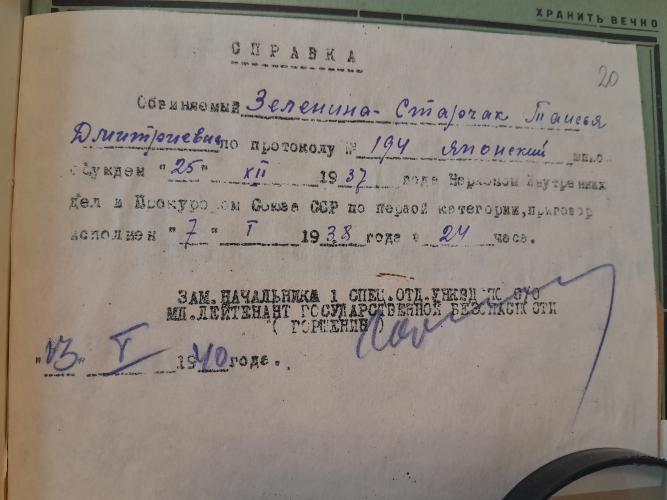 ХРАНИТЬ ВЕЧНО
20
СПРАВКА
Обвиняемый Зеленина-Старчак Таисья
Дмитриевна по протоколу № 194 Японский шпион
осужден "25" XII 1937 года Наркомом Внутренних
Дел и Прокурором Союза ССР по первой категории, приговор
исполнен "7" I 1938 года в 24 часа.
ЗАМ.НАЧАЛЬНИКА 1 СПЕЦ.ОТД.УНКВД ПО
МЛ.ЛЕЙТЕНАНТ ГОСУДАРСТВЕННОЙ БЕЗОПАСНОСТИ
"13" I 1940 года.